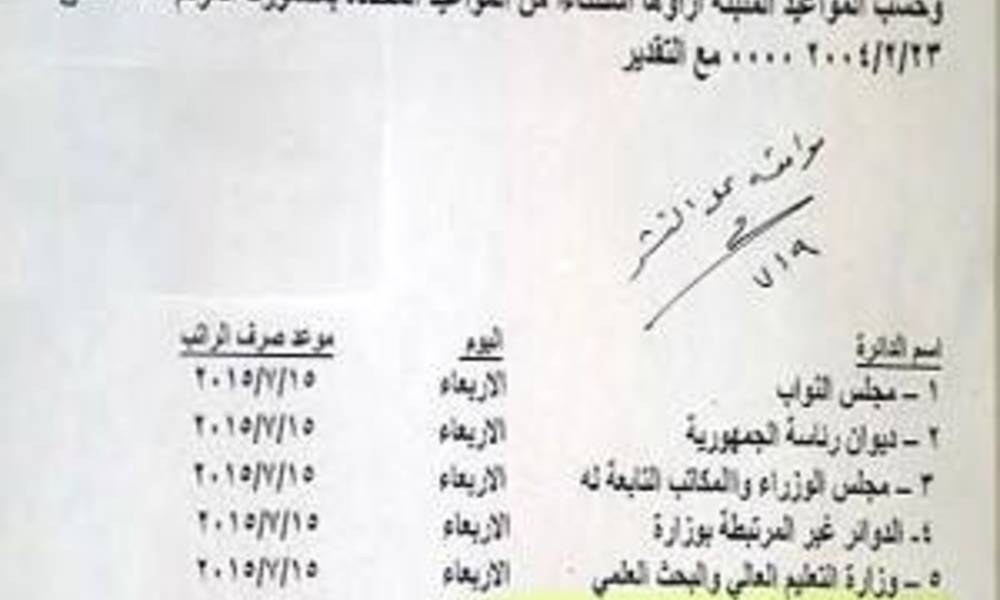 وحسب المواعيد المثبتة ازاؤها استثناءا من المواعيد المحددة
٢٠٠٤/٢/٢٣ ٠٠٠٠ مع التقدير
موافقه على النشر
٧/٩
اسم الدائرة اليوم موعد صرف الراتب
١ – مجلس النواب الاربعاء ٢٠١٥/٧/١٥
٢ – ديوان رئاسة الجمهورية الاربعاء ٢٠١٥/٧/١٥
٣ – مجلس الوزراء والمكاتب التابعة له الاربعاء ٢٠١٥/٧/١٥
٤- الدوائر غير المرتبطة بوزارة الاربعاء ٢٠١٥/٧/١٥
٥ – وزارة التعليم العالي والبحث العلمي الاربعاء ٢٠١٥/٧/١٥